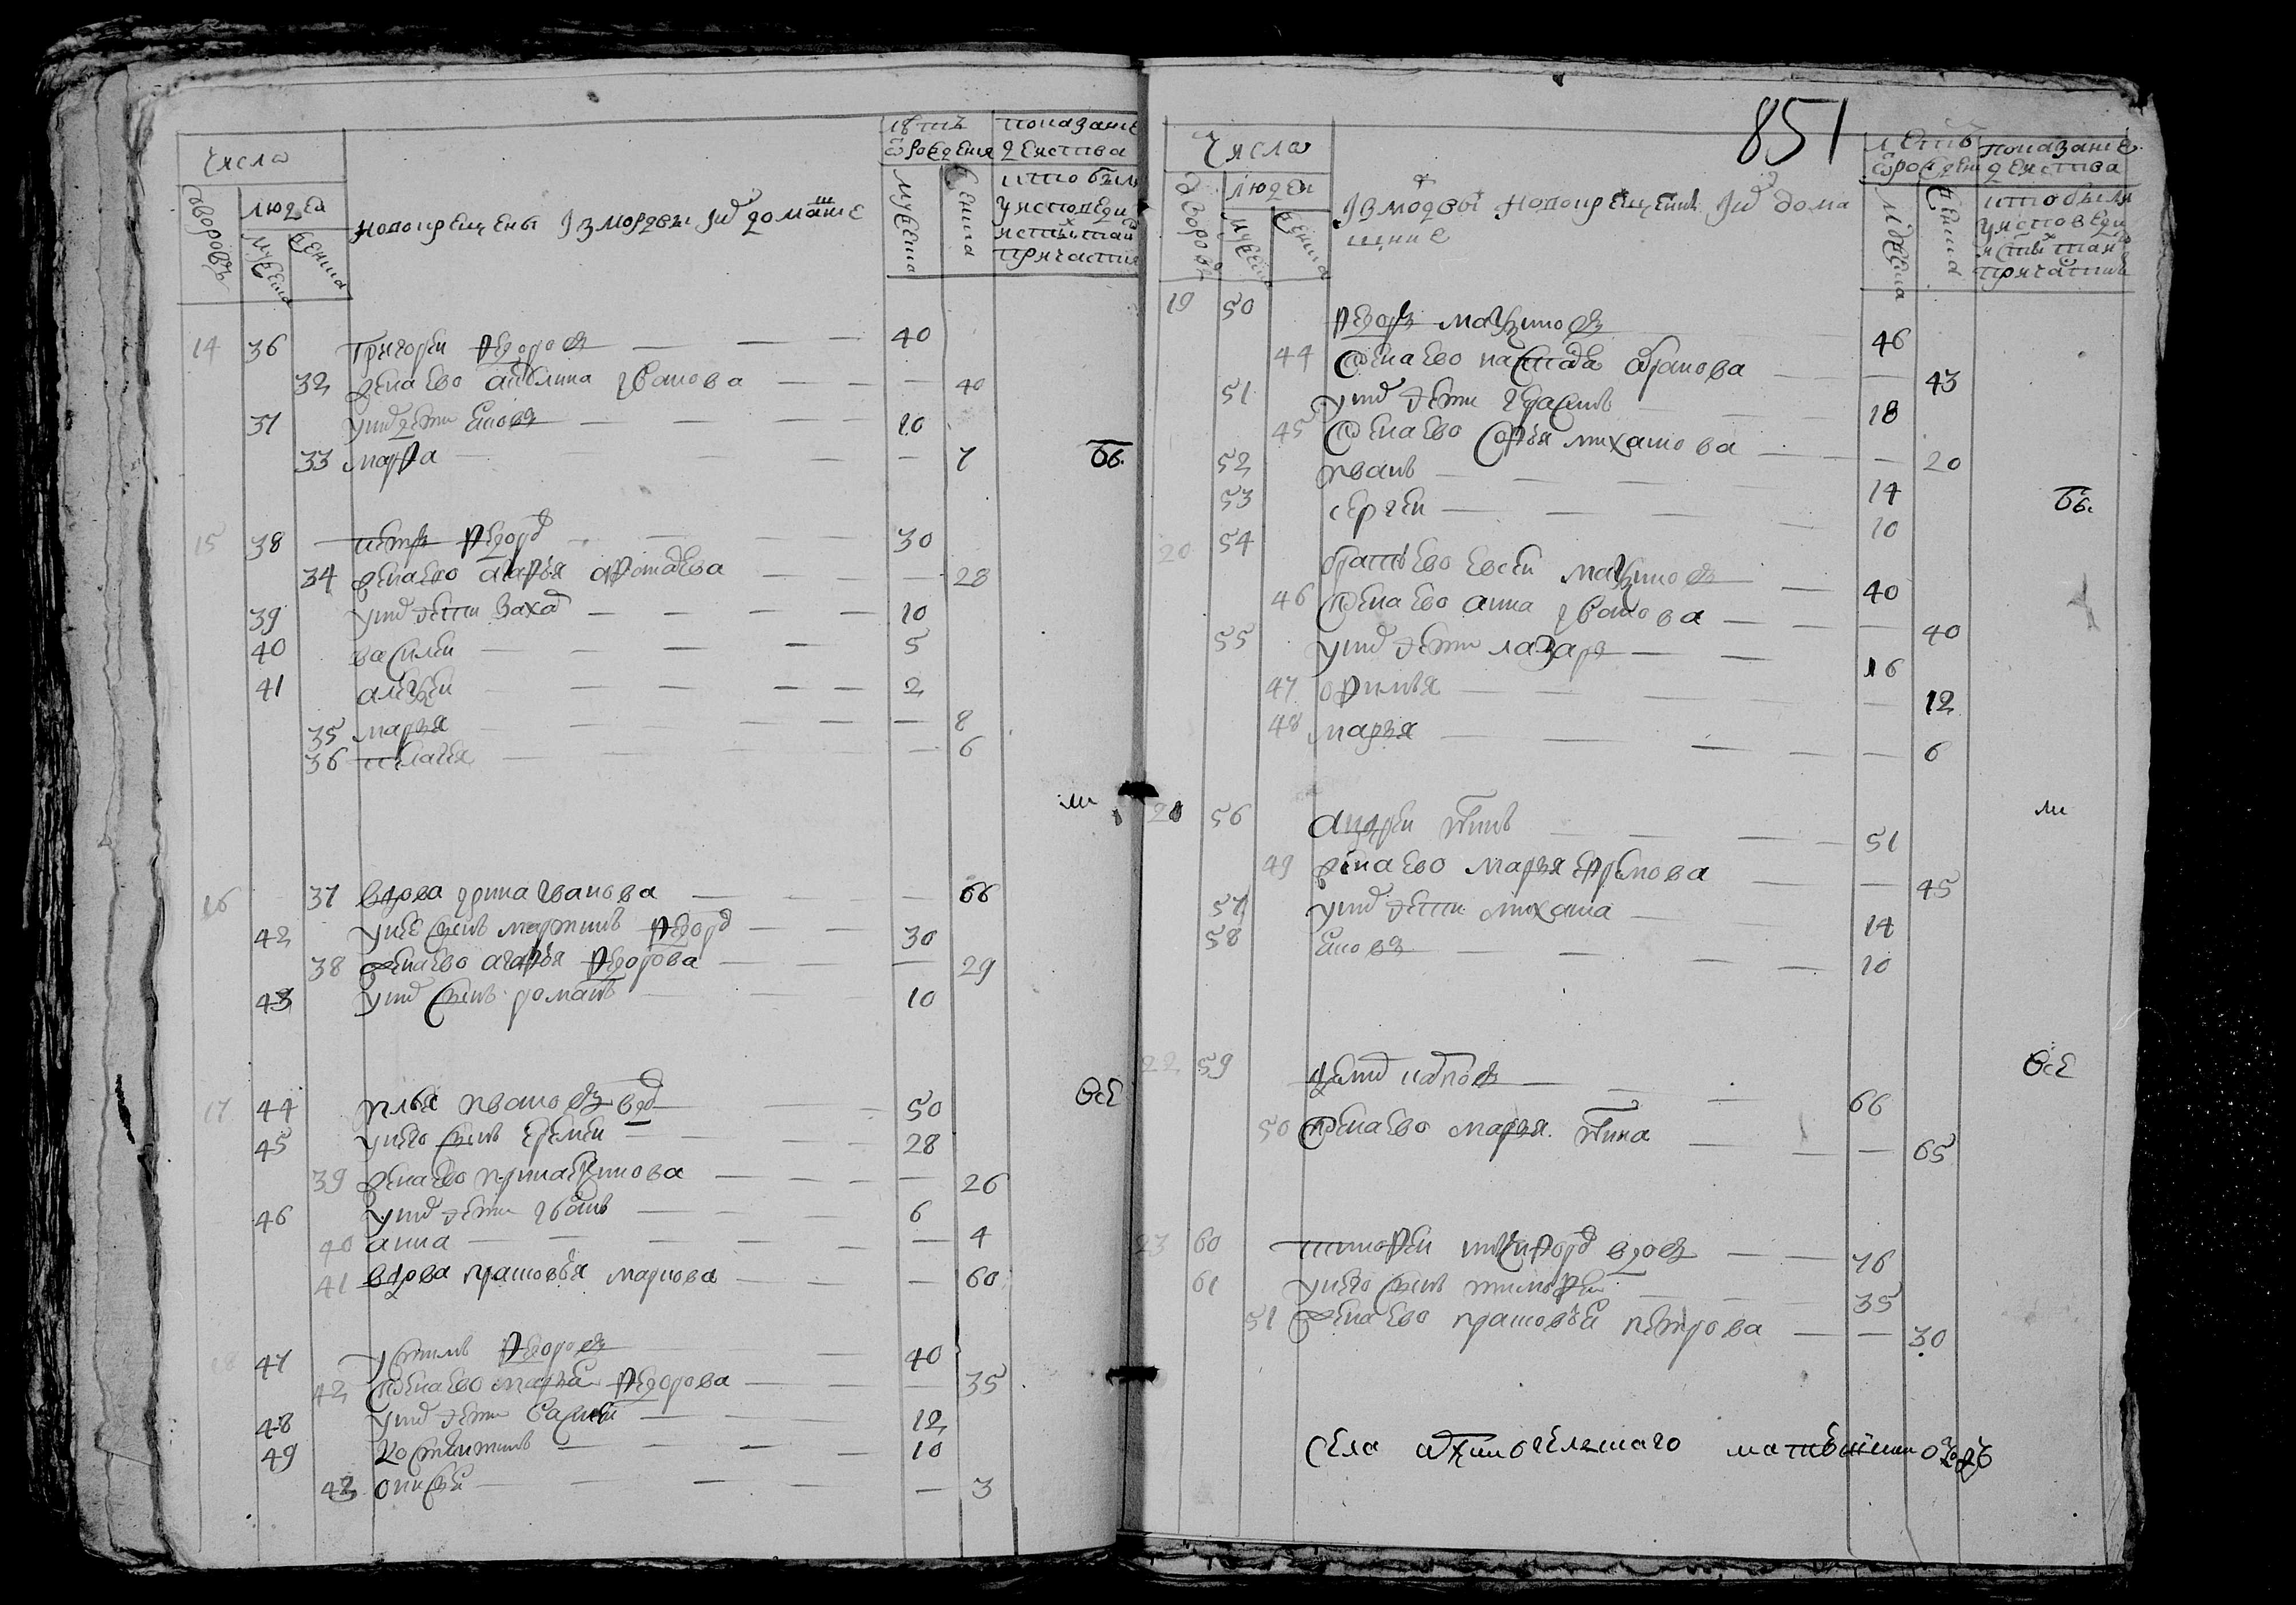 числа
дворовъ
людеи
мужеска
женска
новокрещены із мордвы іхъ домашне
лѣтъ
ѿ рождения
мужеска
женска
показание
действа
кто были
у исповеди
и святыхъ таинъ
причастия
14 36 григореи федоровъ — — — 40
32 жена ево акулина іванова — — — 40
37 у нихъ дети яковъ — — — 10
33 марфа — — — — 7
бв
15 38 петръ федоровъ — — — 30
34 жена ево агафья — — — 28
39 у нихъ дети захаръ — — — — 10
40 василеи — — — — 5
41 алексеи — — — — 2
35 маръя — — — — 8
36 пелагея — — — — 6
ли
16 37 вдова ірина іванова — — — 66
42 у нее сынъ мартинъ федоровъ — — 30
38 жена ево агафья федорова — — 29
43 у нихъ сынъ романъ — — — 10
17 44 илья ивановъ вдовъ — — — 50
все
45 у него сынъ еремеи — — — — 28
39 жена ево ирина — — — — 26
46 у нихъ дети іванъ — — — 6
40 анна — — — — — 4
41 вдова прасковья маркова — — — 60
18 47 устинъ федоровъ — — — 40
42 жена ево маръя федорова — — — 35
48 у нихъ дети василеи — — — 12
49 костентинъ — — — — 10
43 — — — — 3
851
числа
дворовъ
людеи
мужеска
женска
із мордвы новокрещенъ іхъ дома
шние
летъ
ѿ рождени
мужеска
женска
показание
действа
кто были
у исповеди
и святыхъ таинъ
причастие
19 50 федоръ максимовъ 46
44 жена ево абрамова — — 43
51 у нихъ дети герасимъ — — 18
45 жена ево софья михаилова — — 20
52 иванъ — — — — 14
53 сергеи — — — — 10
бв
20 54 братъ ево евсеи максимовъ — 40
46 жена ево анна іванова — — — 40
55 у нихъ дети лазаръ — — 16
47 офимья — — — — 12
48 маръя — — — — — 6
21 56 андреи — — — — 51
ли
49 жена ево маръя ефремова — — 45
57 у нихъ дети михаила — — 14
58 яковъ — — — — 10
22 59 — — — 66
все
50 жена ево маръя — — — 65
23 60 тимофеи никифоровъ вдовъ — — 76
61 у него сынъ тимофеи — — 35
51 жена ево прасковья петрова — — 30
села архангельшаго